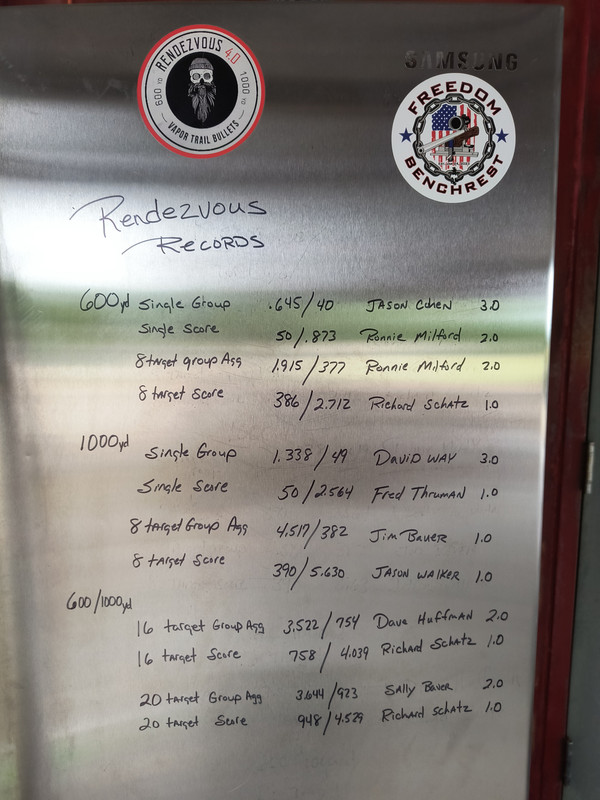 RENDEZVOUS 4.0
600 YD
1000 YD
VAPOR TRAIL BULLETS
SAMSUNG
FREEDOM
BENCHREST
Rendezvous
RECORDS
600yd Single Group .645/40 JASON Cohen 3.0
Single Score 50/.873 Ronnie Milford 2.0
8 target group Agg 1.915/377 Ronnie Milford 2.0
8 target Score 386/2.712 Richard Schatz 1.0
1000yd
Single Group 1.338/49 DAVID WAY 3.0
Single Score 50/2.564 Fred ThrumAN 1.0
8 target Group Agg 4.517/382 Jim Bauer 1.0
8 target Score 390/5.630 JASON WALKER 1.0
600/1000yd
16 target Group Agg 3.522/754 Dave HuffmAN 2.0
16 target Score 758/4.039 Richard Schatz 1.0
20 target Group Agg 3.644/923 Sally Bauer 2.0
20 target Score 948/4.529 Richard Schatz 1.0